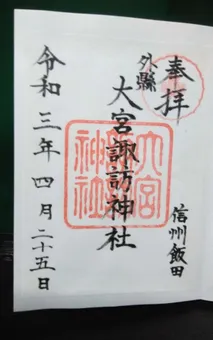 奉拝
信州飯田
外縣
大宮諏訪神社
令和三年四月二十五日
大宮
諏訪
神社